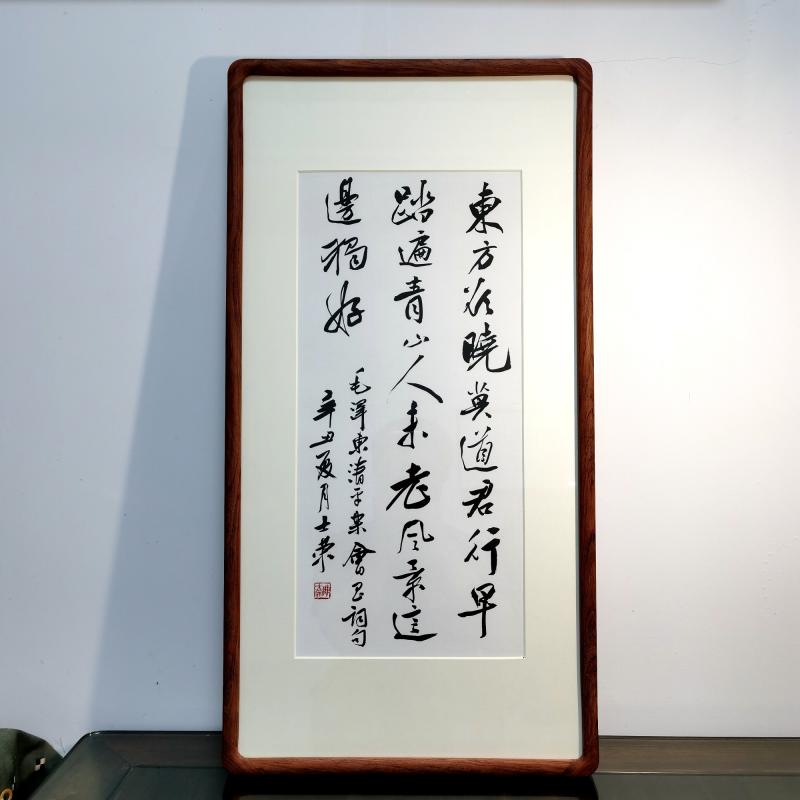 東方欲曉莫道君行早
踏遍青山人未老風景這
邊獨好
毛澤東清平樂會昌詞句
辛丑夏月士榮